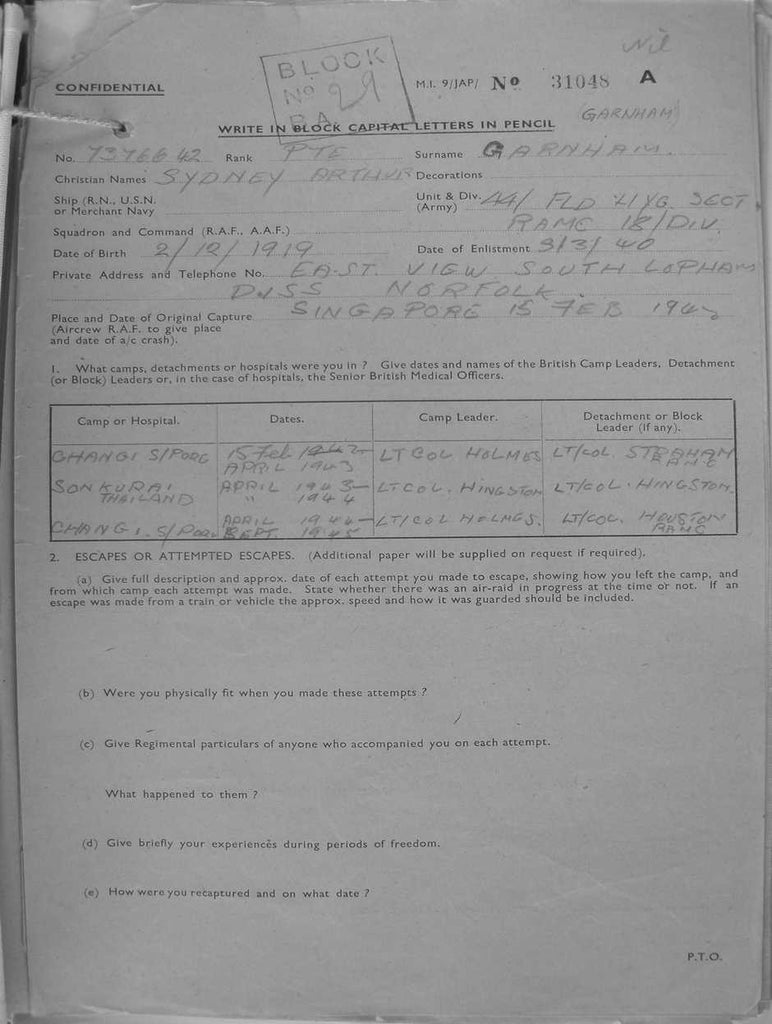 Nil
CONFIDENTIAL
BLOCK
No 29
BA
M.I. 9/JAP/ No 31048 A
GARNHAM
WRITE IN BLOCK CAPITAL LETTERS IN PENCIL
No. 7376642 Rank PTE Surname GARNHAM.
Christian Names SYDNEY ARTHUR Decorations
Ship (R.N., U.S.N. or Merchant Navy
Unit & Div. (Army) 44/ FLD HYG. SECT
RAMC 18/DIV.
Squadron and Command (R.A.F., A.A.F.)
Date of Birth 2/12/1919 Date of Enlistment 3/3/40
Private Address and Telephone No. EAST. VIEW SOUTH LOPHAM
DISS NORFOLK.
Place and Date of Original Capture SINGAPORE 15 FEB 1942
(Aircrew R.A.F. to give place
and date of a/c crash).
1. What camps, detachments or hospitals were you in ? Give dates and names of the British Camp Leaders, Detachment
(or Block) Leaders or, in the case of hospitals, the Senior British Medical Officers.
Camp or Hospital. Dates. Camp Leader. Detachment or Block Leader (if any).
CHANGI S/PORE 15 Feb 1942- APRIL 1943 LT COL HOLMES LT/COL. STRAHAN RAMC
SON KURAI THAILAND APRIL 1943- " 1944 LT COL. HINGSTON LT/COL. HINGSTON.
CHANGI. S/PORE APRIL 1944- SEPT. 1945 LT/COL HOLMES. LT/COL. HEUSTON RAMC
2. ESCAPES OR ATTEMPTED ESCAPES. (Additional paper will be supplied on request if required).
(a) Give full description and approx. date of each attempt you made to escape, showing how you left the camp, and
from which camp each attempt was made. State whether there was an air-raid in progress at the time or not. If an
escape was made from a train or vehicle the approx. speed and how it was guarded should be included.
(b) Were you physically fit when you made these attempts ?
(c) Give Regimental particulars of anyone who accompanied you on each attempt.
What happened to them ?
(d) Give briefly your experiences during periods of freedom.
(e) How were you recaptured and on what date ?
P.T.O.